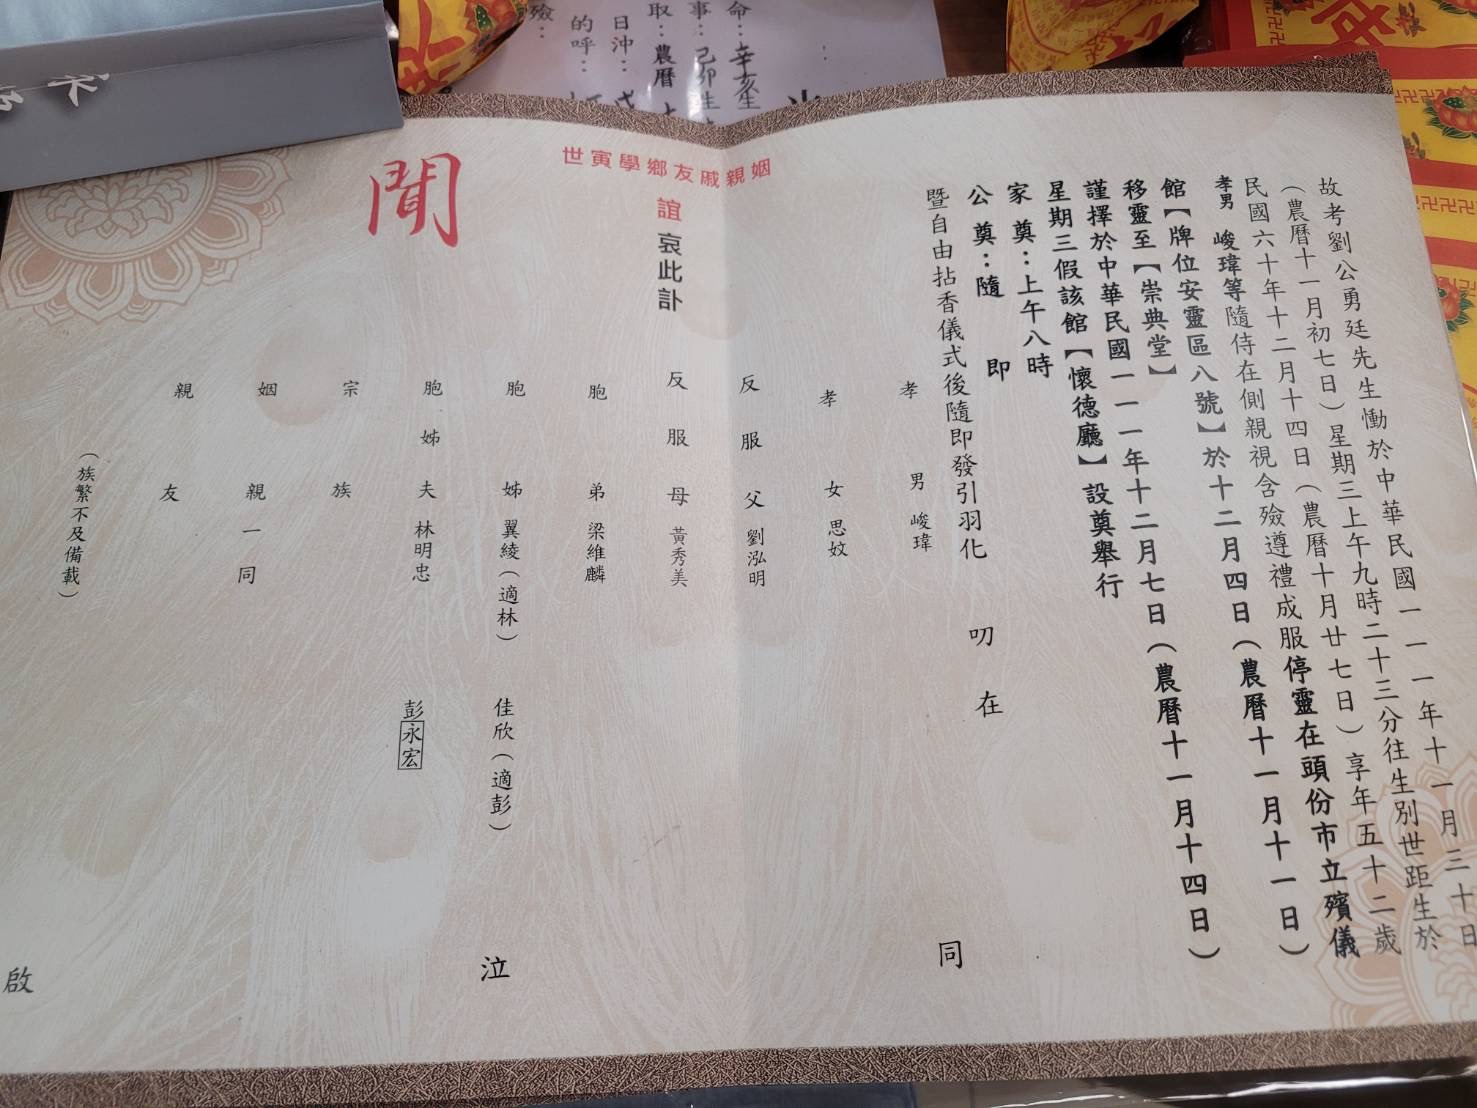 故考劉公勇廷先生慟於中華民國一一一年十一月三十日
（農曆十一月初七日）星期三上午九時二十三分往生別世距生於
民國六十年十二月十四日（農曆十月廿七日）享年五十二歲
孝男 峻瑋等隨侍在側親視含殮遵禮成服停靈在頭份市立殯儀
館【牌位安靈區八號】於十二月四日（農曆十一月十一日）
移靈至【崇典堂】
謹擇於中華民國一一一年十二月七日（農曆十一月十四日）
星期三假該館【懷德廳】設奠舉行
家奠：上午八時
公奠：隨即
暨自由拈香儀式後隨即發引羽化
叨在
同
姻親戚友鄉學寅世
誼哀此訃
聞
孝男 峻瑋
孝女 思妏
反服父 劉泓明
反服母 黃秀美
胞弟 梁維麟
胞姊 翼綾（適林） 佳欣（適彭）
胞姊夫 林明忠 彭永宏
宗族
姻親一同
親友
（族繁不及備載）
泣
啟
命：辛亥生
事：己卯生
取：農曆
日沖：
的呼：
殮：